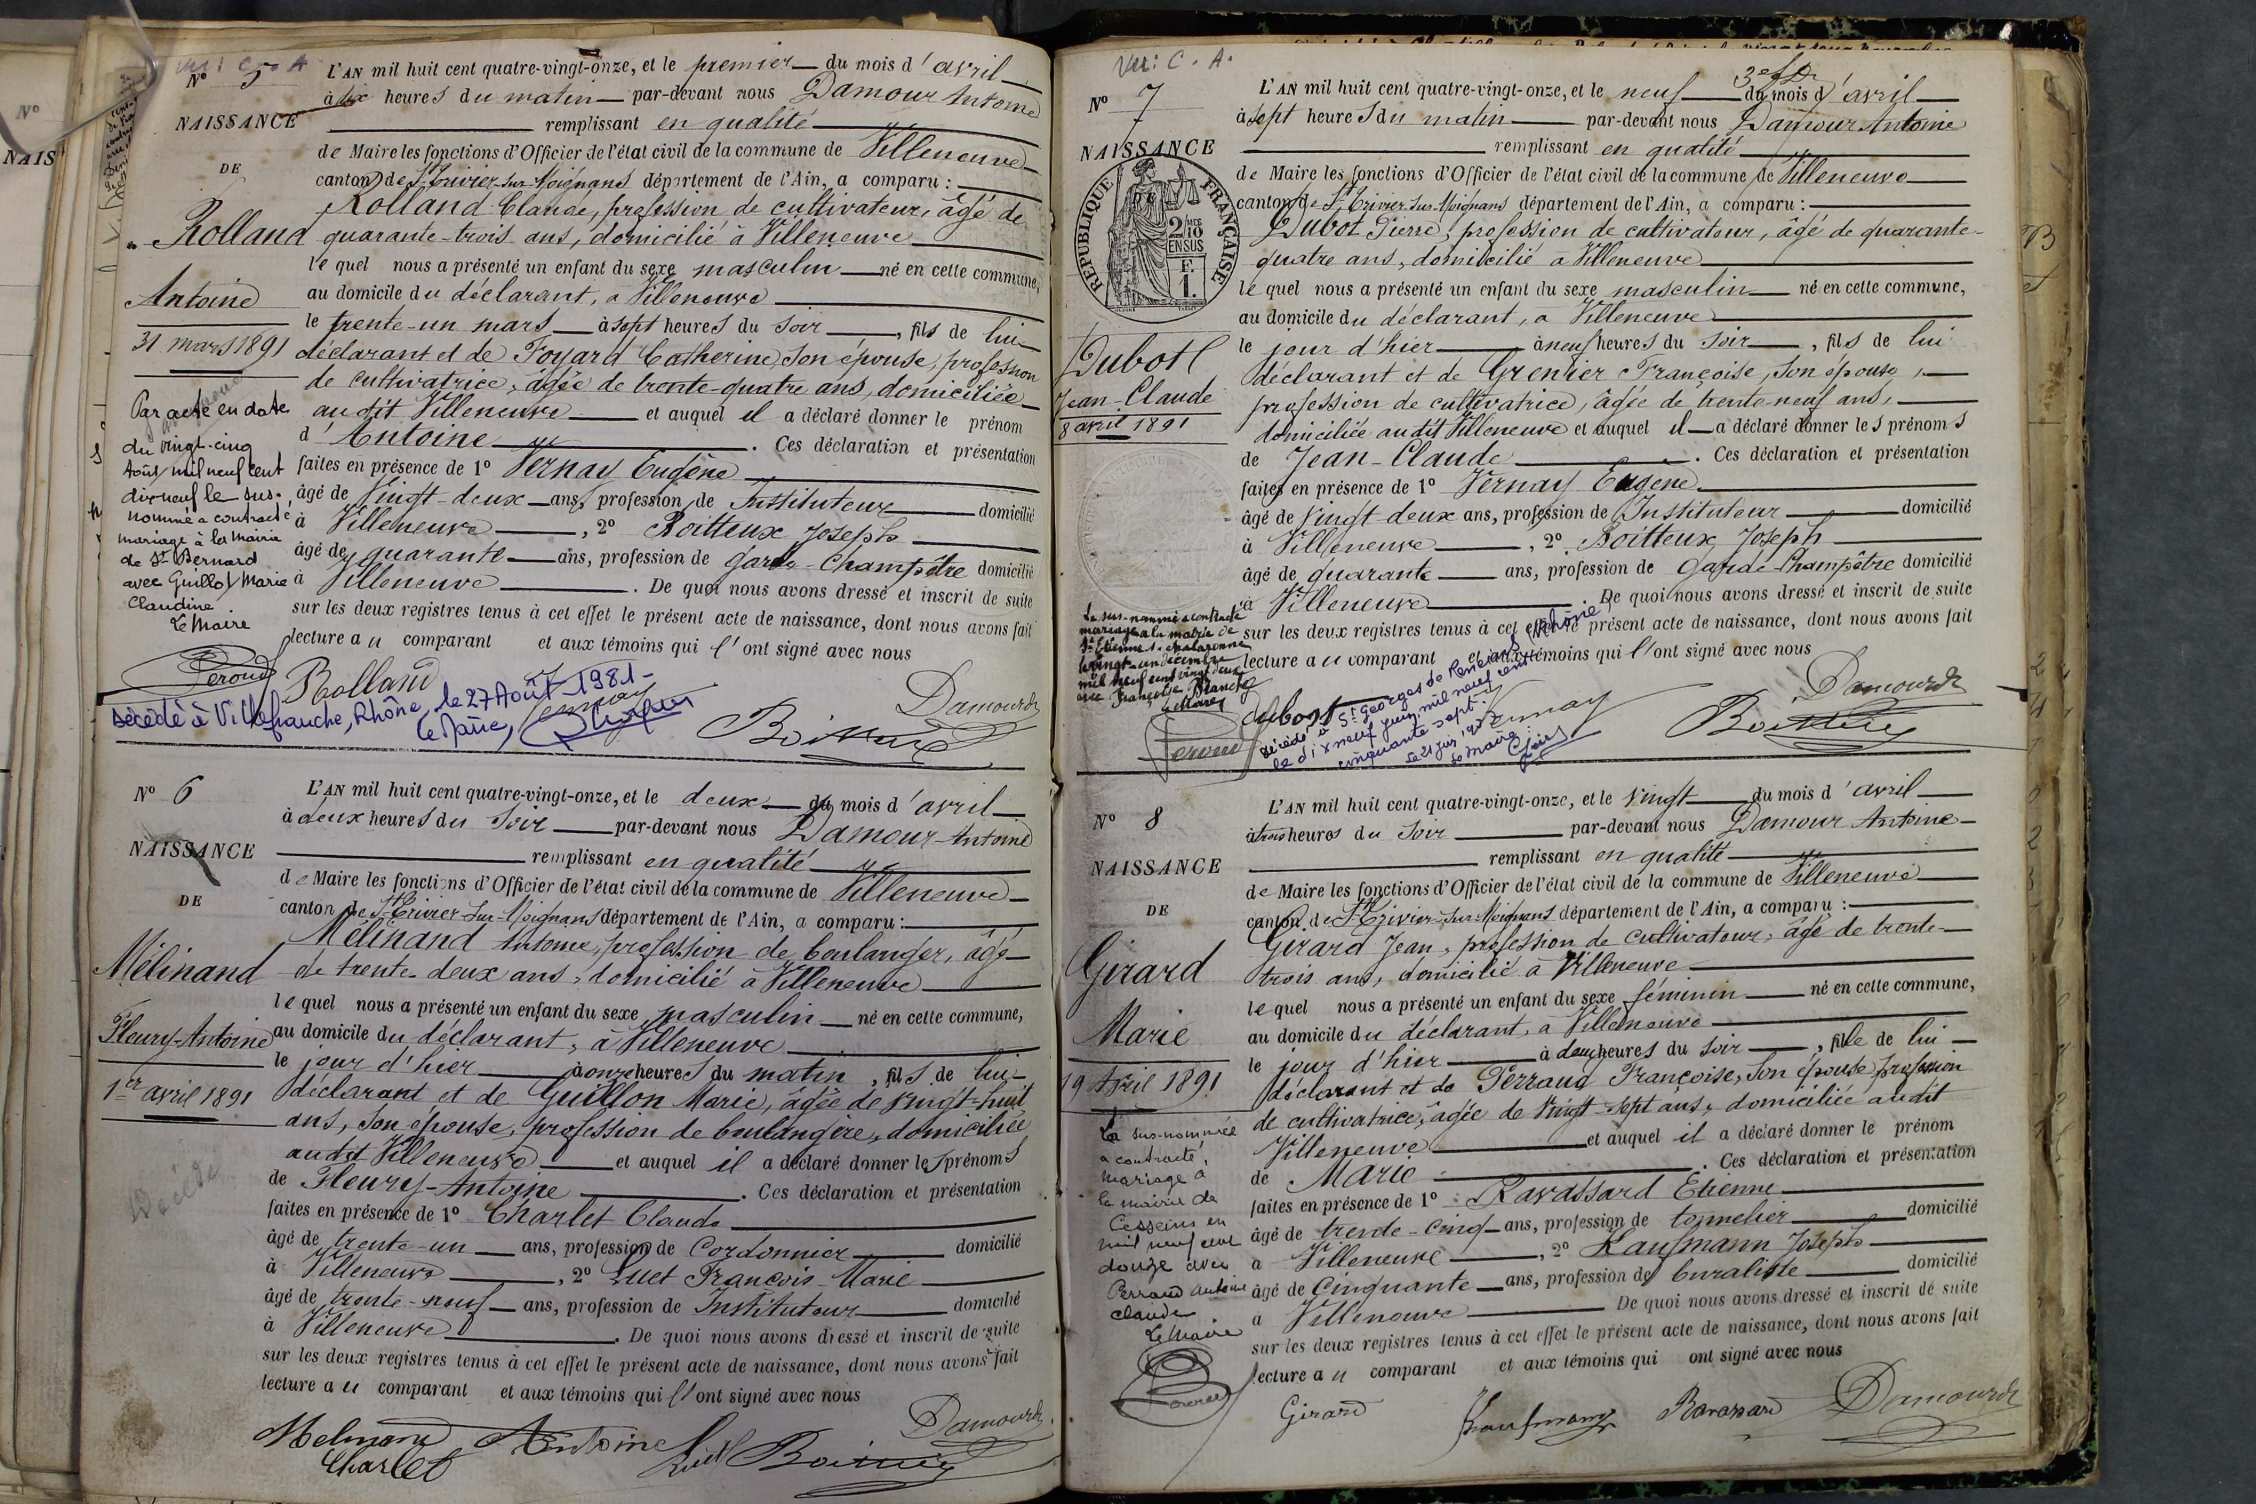 Vu : C. A.
N° 5
NAISSANCE
DE
Rolland
Antoine
31 mars 1891
Par acte en date
du vingt-cinq
Août mil neuf cent
dix neuf le sus-
nommé a contracté
mariage à la Mairie
de St Bernard
avec Guillot Marie
Claudine.
Le Maire
L'AN mil huit cent quatre-vingt-onze, et le premier du mois d'avril
à dix heures du matin par-devant nous Damour Antoine
remplissant en qualité
de Maire les fonctions d'Officier de l'état civil de la commune de Villeneuve
canton de St Trivier-sur-Moignans département de l'Ain, a comparu :
Rolland Claude, profession de cultivateur, âgé de
quarante-trois ans, domicilié à Villeneuve
lequel nous a présenté un enfant du sexe masculin né en cette commune,
au domicile du déclarant, à Villeneuve
le trente-un mars à sept heures du soir, fils de lui
déclarant et de Foyard Catherine, son épouse, profession
de cultivatrice, âgée de trente-quatre ans, domiciliée
audit Villeneuve et auquel il a déclaré donner le prénom
d'Antoine. Ces déclaration et présentation
faites en présence de 1° Vernay Eugène
âgé de vingt-deux ans, profession de Instituteur domicilié
à Villeneuve, 2° Boitteux Joseph
âgé de quarante ans, profession de garde-champêtre domicilié
à Villeneuve. De quoi nous avons dressé et inscrit de suite
sur les deux registres tenus à cet effet le présent acte de naissance, dont nous avons fait
lecture au comparant et aux témoins qui l'ont signé avec nous
Peroud Rolland Vernay Damour
Décédé à Villefranche, Rhône, le 27 Août 1981-
Le Maire,
N° 6
NAISSANCE
DE
Mélinand
Fleury-Antoine
1er avril 1891
Décédé
L'AN mil huit cent quatre-vingt-onze, et le deux du mois d'avril
à deux heures du soir par-devant nous Damour Antoine
remplissant en qualité
de Maire les fonctions d'Officier de l'état civil de la commune de Villeneuve
canton de St Trivier-sur-Moignans département de l'Ain, a comparu :
Mélinand Antoine, profession de boulanger, âgé
de trente-deux ans, domicilié à Villeneuve
lequel nous a présenté un enfant du sexe masculin né en cette commune,
au domicile du déclarant, à Villeneuve
le jour d'hier à onze heures du matin, fils de lui
déclarant et de Guillon Marie, âgée de vingt-huit
ans, son épouse, profession de boulangère, domiciliée
audit Villeneuve et auquel il a déclaré donner les prénoms
de Fleury-Antoine. Ces déclaration et présentation
faites en présence de 1° Charlet Claude
âgé de trente-un ans, profession de Cordonnier domicilié
à Villeneuve, 2° Luet François-Marie
âgé de trente-neuf ans, profession de Instituteur domicilié
à Villeneuve. De quoi nous avons dressé et inscrit de suite
sur les deux registres tenus à cet effet le présent acte de naissance, dont nous avons fait
lecture au comparant et aux témoins qui l'ont signé avec nous
Damour
Melinand Antoine Luet
Charlet
Vu : C. A.
N° 7
NAISSANCE
RÉPUBLIQUE FRANÇAISE
DE
2/10
EN SUS
F.
1.
Dubost
Jean-Claude
8 avril 1891
Le sus-nommé a contracté
mariage à la mairie de
St Etienne s. chalaronne
le vingt-un décembre
mil neuf cent vingt deux
avec Françoise Blanche
Le Maire
3e fDr
L'AN mil huit cent quatre-vingt-onze, et le neuf du mois d'avril
à sept heures du matin par-devant nous Damour Antoine
remplissant en qualité
de Maire les fonctions d'Officier de l'état civil de la commune de Villeneuve
canton de St Trivier-sur-Moignans département de l'Ain, a comparu :
Dubot Pierre, profession de cultivateur, âgé de quarante-
quatre ans, domicilié à Villeneuve
lequel nous a présenté un enfant du sexe masculin né en cette commune,
au domicile du déclarant, à Villeneuve
le jour d'hier à neuf heures du soir, fils de lui
déclarant et de Grenier Françoise, son épouse,
profession de cultivatrice, âgée de trente-neuf ans,
domiciliée audit Villeneuve et auquel il a déclaré donner les prénoms
de Jean-Claude. Ces déclaration et présentation
faites en présence de 1° Vernay Eugène
âgé de vingt-deux ans, profession de Instituteur domicilié
à Villeneuve, 2° Boitteux Joseph
âgé de quarante ans, profession de garde-champêtre domicilié
à Villeneuve. De quoi nous avons dressé et inscrit de suite
sur les deux registres tenus à cet effet le présent acte de naissance, dont nous avons fait
lecture au comparant et aux témoins qui l'ont signé avec nous
Peroud Dubost Vernay Damour
Décédé à St Georges de Reneins (Rhône)
le dix neuf juin mil neuf cent
cinquante sept.
Le 21 juin 1957
Le Maire
N° 8
NAISSANCE
DE
Girard
Marie
19 Avril 1891
La sus-nommée
a contracté
mariage à
la mairie de
Cesseins en
mil neuf cent
douze avec
Perraud Antoine
Claude
Le Maire
L'AN mil huit cent quatre-vingt-onze, et le vingt du mois d'avril
à trois heures du soir par-devant nous Damour Antoine
remplissant en qualité
de Maire les fonctions d'Officier de l'état civil de la commune de Villeneuve
canton de St Trivier-sur-Moignans département de l'Ain, a comparu :
Girard Jean, profession de cultivateur, âgé de trente-
trois ans, domicilié à Villeneuve
lequel nous a présenté un enfant du sexe féminin né en cette commune,
au domicile du déclarant, à Villeneuve
le jour d'hier à deux heures du soir, fille de lui
déclarant et de Perraud Françoise, son épouse, profession
de cultivatrice, âgée de vingt-sept ans, domiciliée audit
Villeneuve et auquel il a déclaré donner le prénom
de Marie. Ces déclaration et présentation
faites en présence de 1° Ravassard Etienne
âgé de trente-cinq ans, profession de tonnelier domicilié
à Villeneuve, 2° Kaufmann Joseph
âgé de cinquante ans, profession de buraliste domicilié
à Villeneuve De quoi nous avons dressé et inscrit de suite
sur les deux registres tenus à cet effet le présent acte de naissance, dont nous avons fait
lecture au comparant et aux témoins qui ont signé avec nous
Girard Kaufmann Ravassard Damour